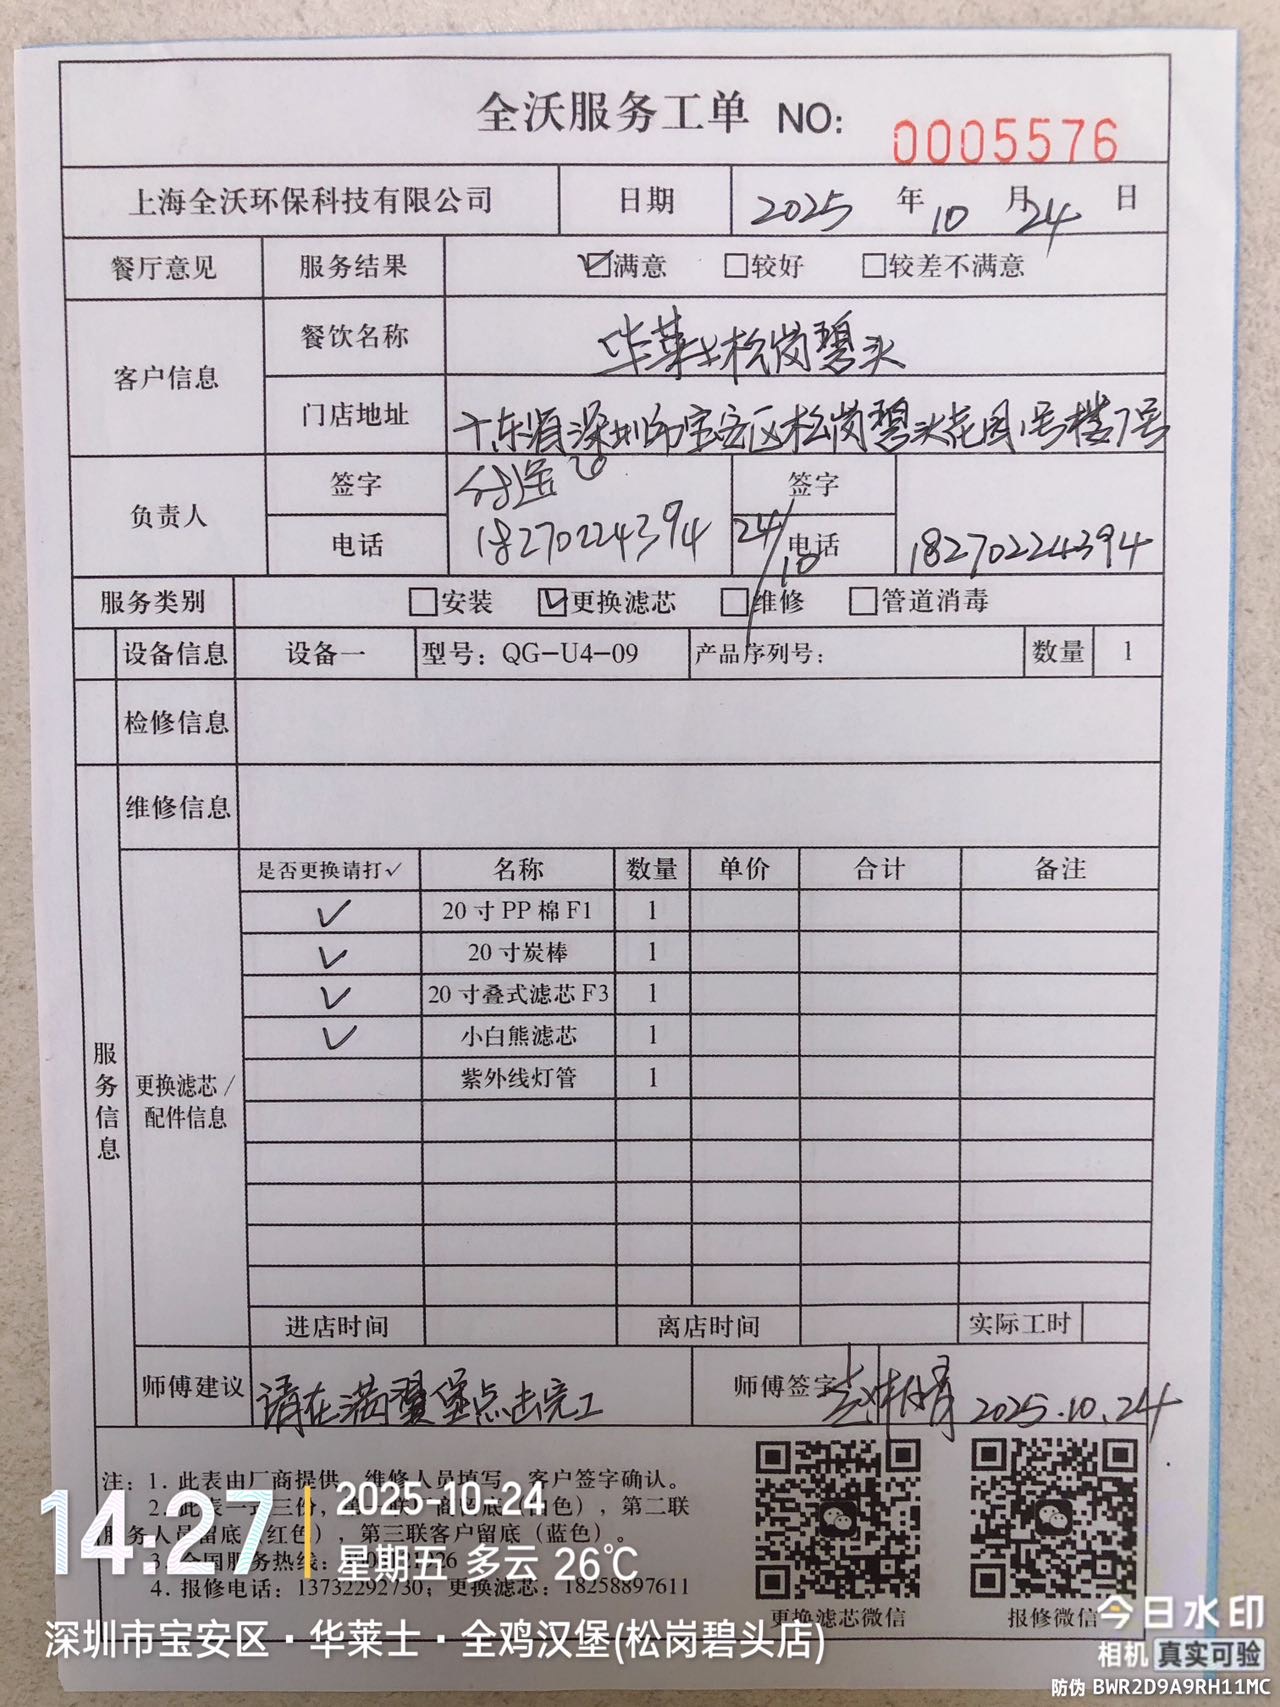 全沃服务工单 NO: 0005576
上海全沃环保科技有限公司 日期 2025 年 10 月 24 日
餐厅意见 服务结果 ☑满意 □较好 □较差不满意
客户信息 餐饮名称 华莱士松岗碧头
门店地址 广东省深圳市宝安区松岗碧头花园1号楼7号
负责人 签字 签字
电话 18270224394 24/10 电话 18270224394
服务类别 □安装 ☑更换滤芯 □维修 □管道消毒
设备信息 设备一 型号：QG-U4-09 产品序列号： 数量 1
检修信息
维修信息
服务信息
更换滤芯/配件信息
是否更换请打✓ 名称 数量 单价 合计 备注
✓ 20寸PP棉F1 1
✓ 20寸炭棒 1
✓ 20寸叠式滤芯F3 1
✓ 小白熊滤芯 1
紫外线灯管 1
进店时间 离店时间 实际工时
师傅建议 请在满翼堡点击完工 师傅签字 2025.10.24
注：1. 此表由厂商提供，维修人员填写，客户签字确认。
2. 此表一式三份，第一联厂商留底（白色），第二联
服务人员留底（红色），第三联客户留底（蓝色）。
3. 全国服务热线：
4. 报修电话：13732292730；更换滤芯：18258897611
更换滤芯微信 报修微信
14:27
2025-10-24
星期五 多云 26℃
深圳市宝安区·华莱士·全鸡汉堡(松岗碧头店)
今日水印
相机 真实可验
防伪 BWR2D9A9RH11MC